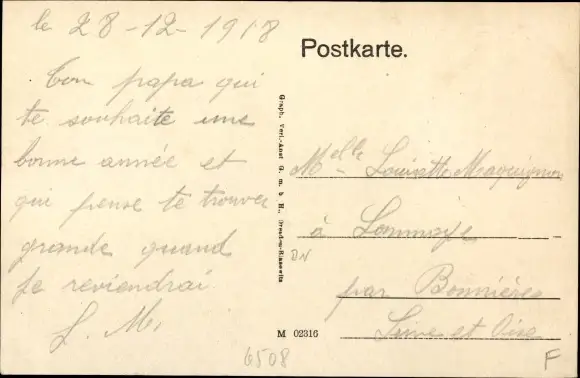 le 28-12-1918
Ton papa qui
te souhaite une
bonne année et
qui pense te trouver
grande quand
je reviendrai
L. M.
Postkarte.
Graph. Verl.-Anst G. m. b. H., Dresden
M 02316
Melle Louisette Maquignon
à Lommoye
par Bonnières
Seine et Oise
DN
6508
F